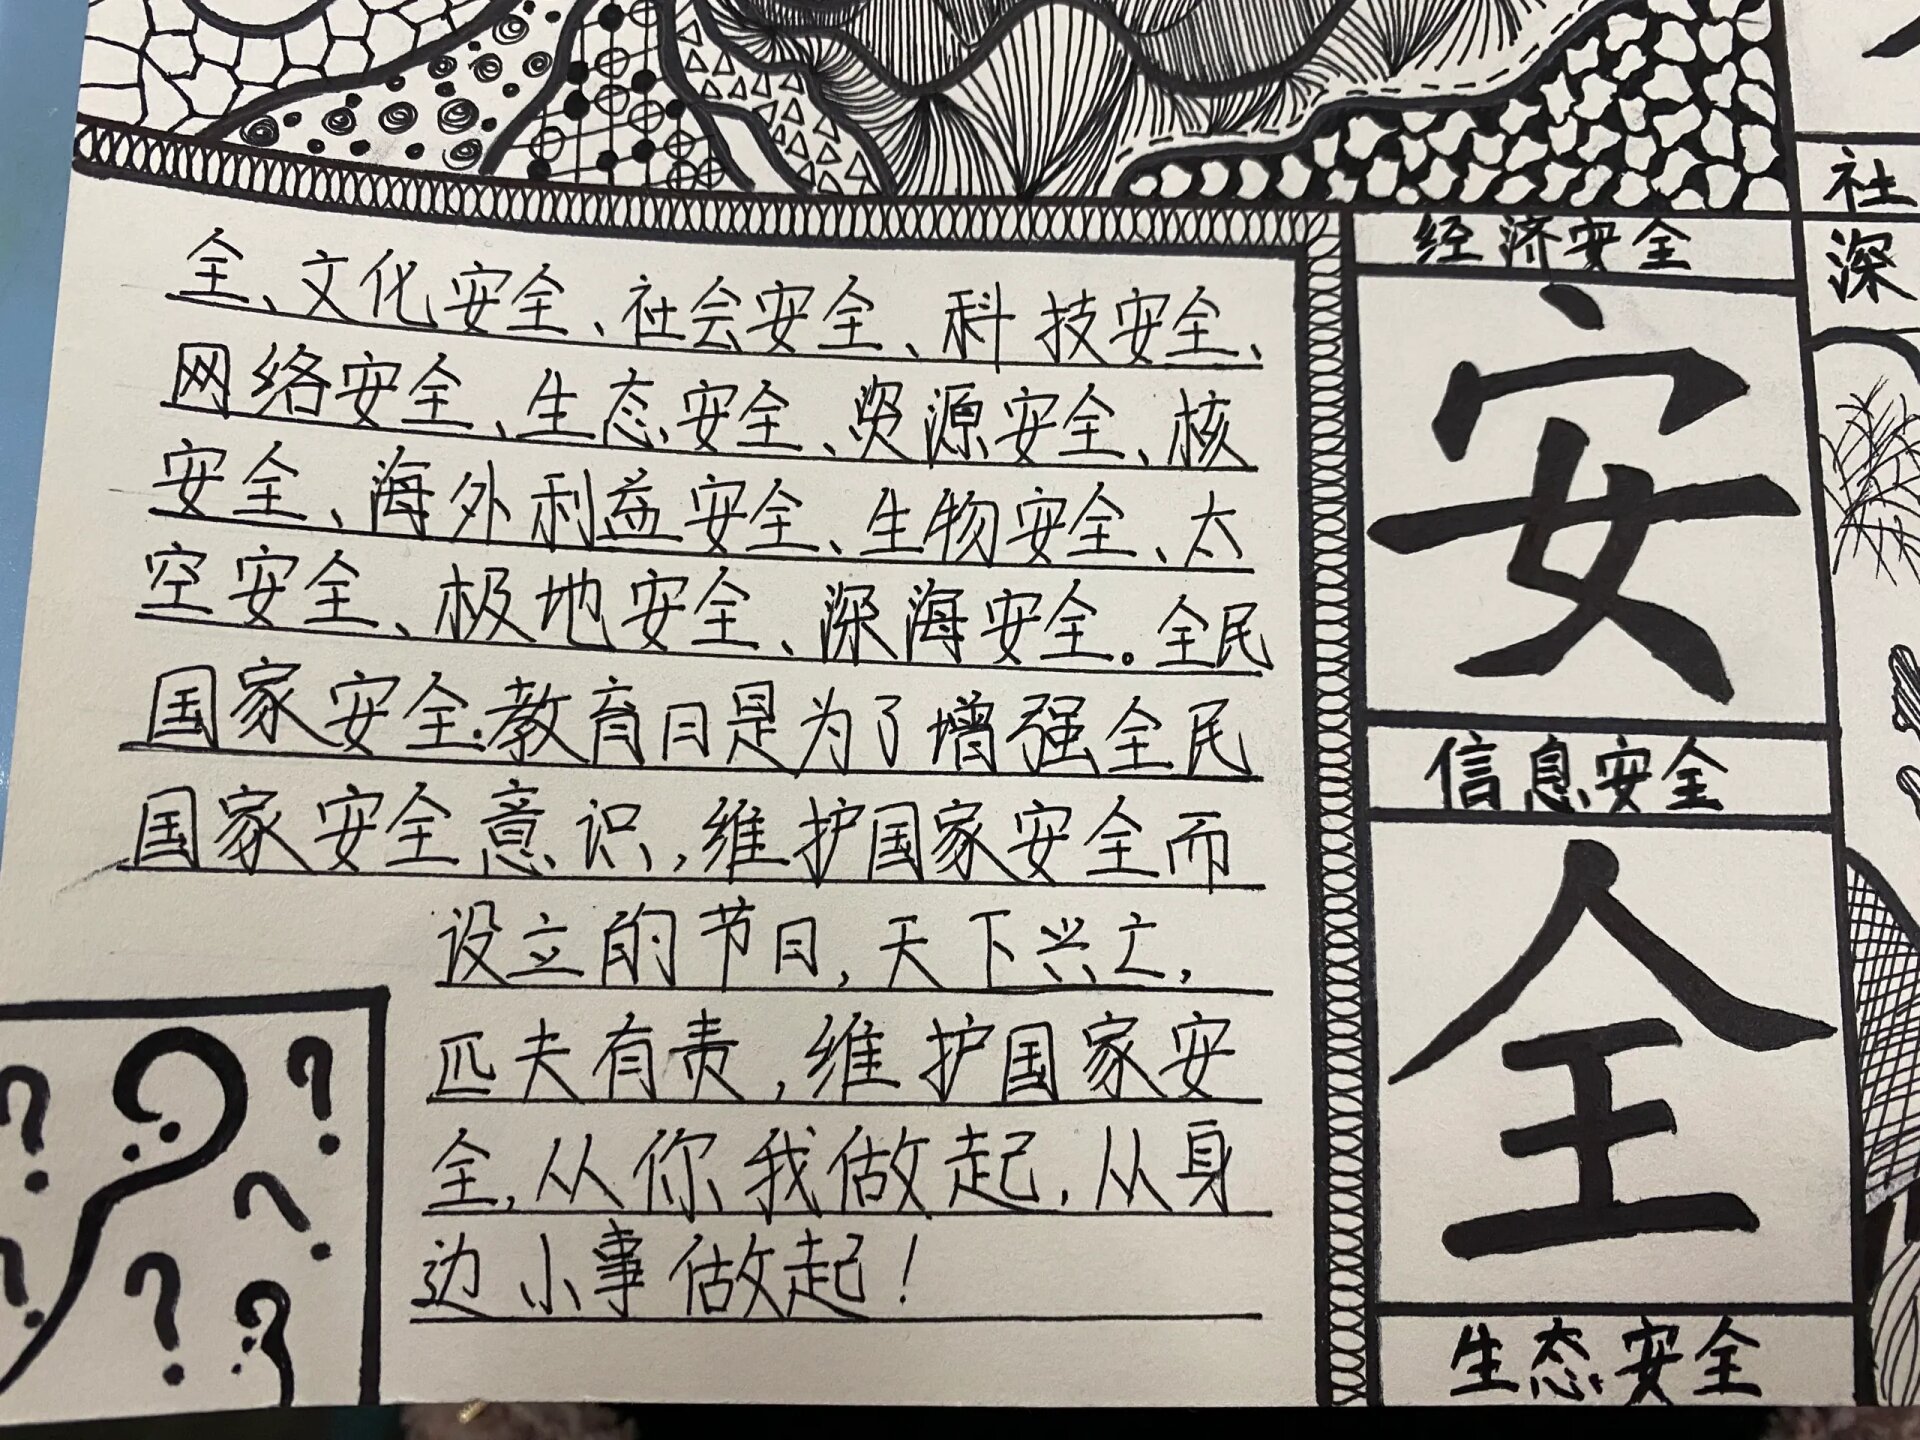 全、文化安全、社会安全、科技安全、
网络安全、生态安全、资源安全、核
安全、海外利益安全、生物安全、太
空安全、极地安全、深海安全。全民
国家安全教育日是为了增强全民
国家安全意识,维护国家安全而
设立的节日,天下兴亡,
匹夫有责,维护国家安
全,从你我做起,从身
边小事做起!
经济安全
安
信息安全
全
生态安全
社
深